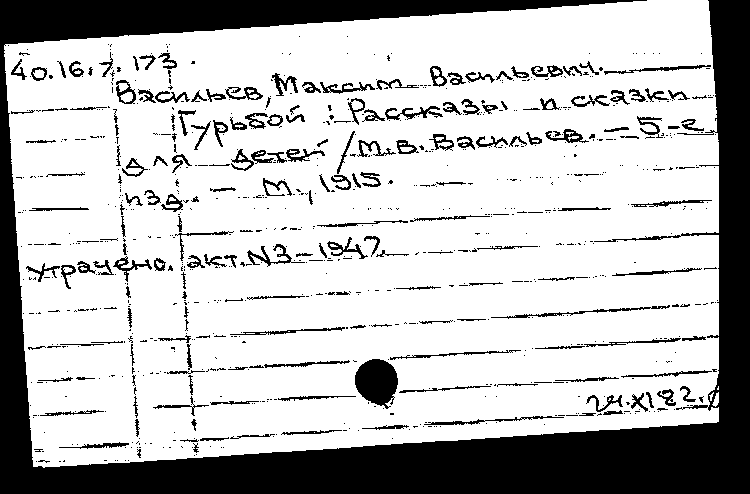 40.16.7.173.
Васильев, Максим Васильевич.
Гурьбой : Рассказы и сказки
для детей / М.В. Васильев. — 5-е
изд. — М., 1915.
Утрачено. акт. N3 – 1947.
24.XI 82.